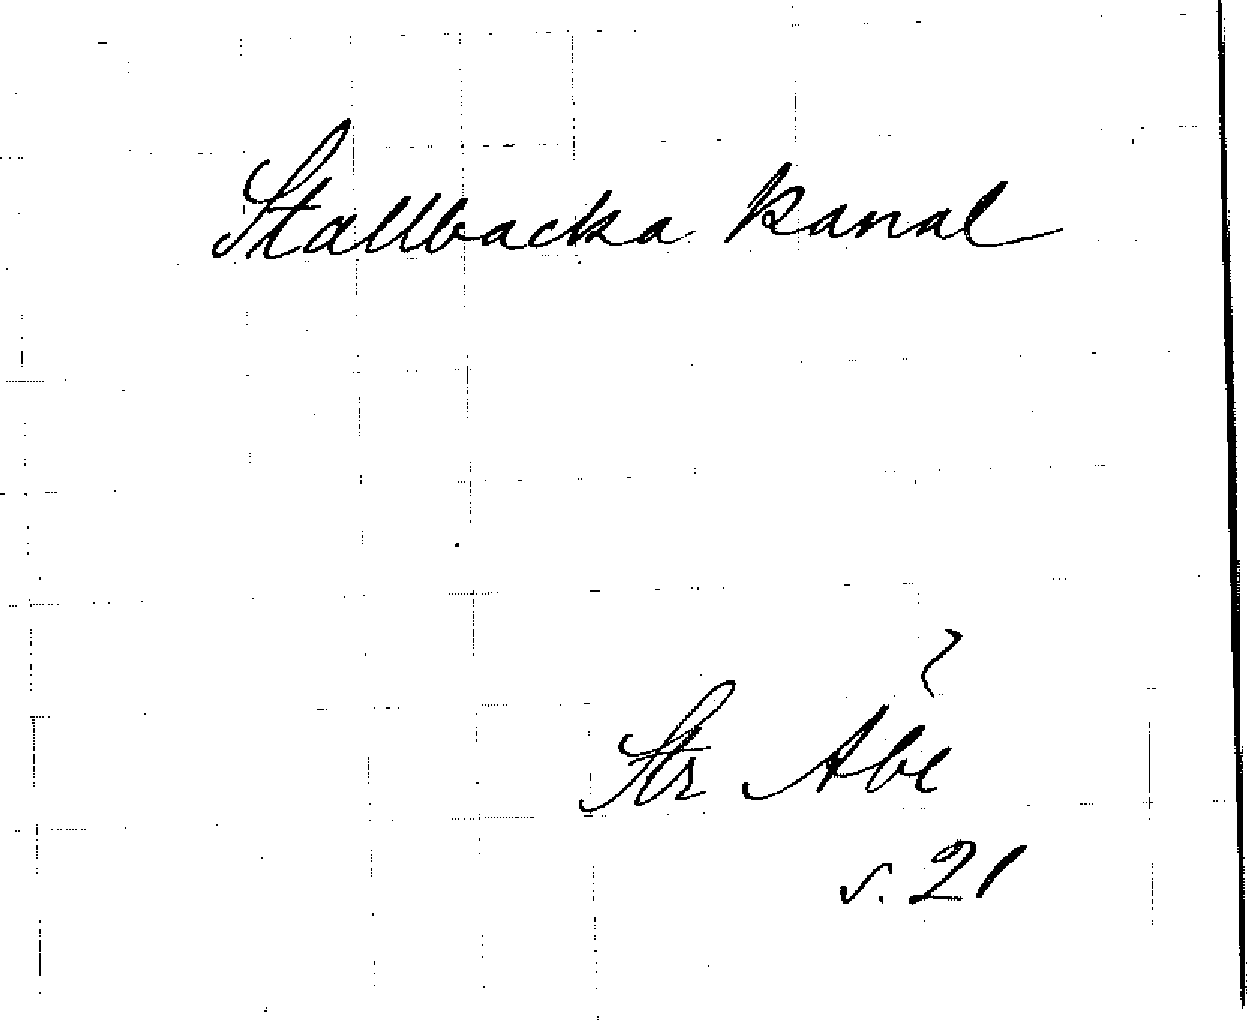 Stallbacka kanal
Str Åbe
s. 21